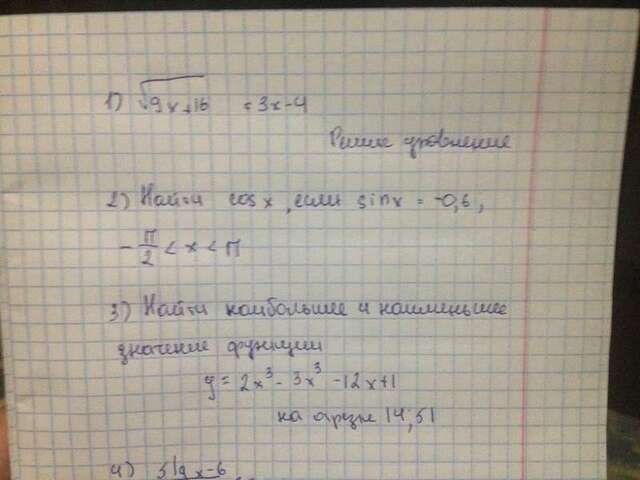 1) √9x+16 = 3x-4
Решить уровнение
2) Найти cos x, если sinx = -0,6,
- π/2 < x < π
3) Найти наибольшее и наименьшее
значение функции
y = 2x³ - 3x³ - 12x+1
на отрзке 14; 51
4) 3lgx-6